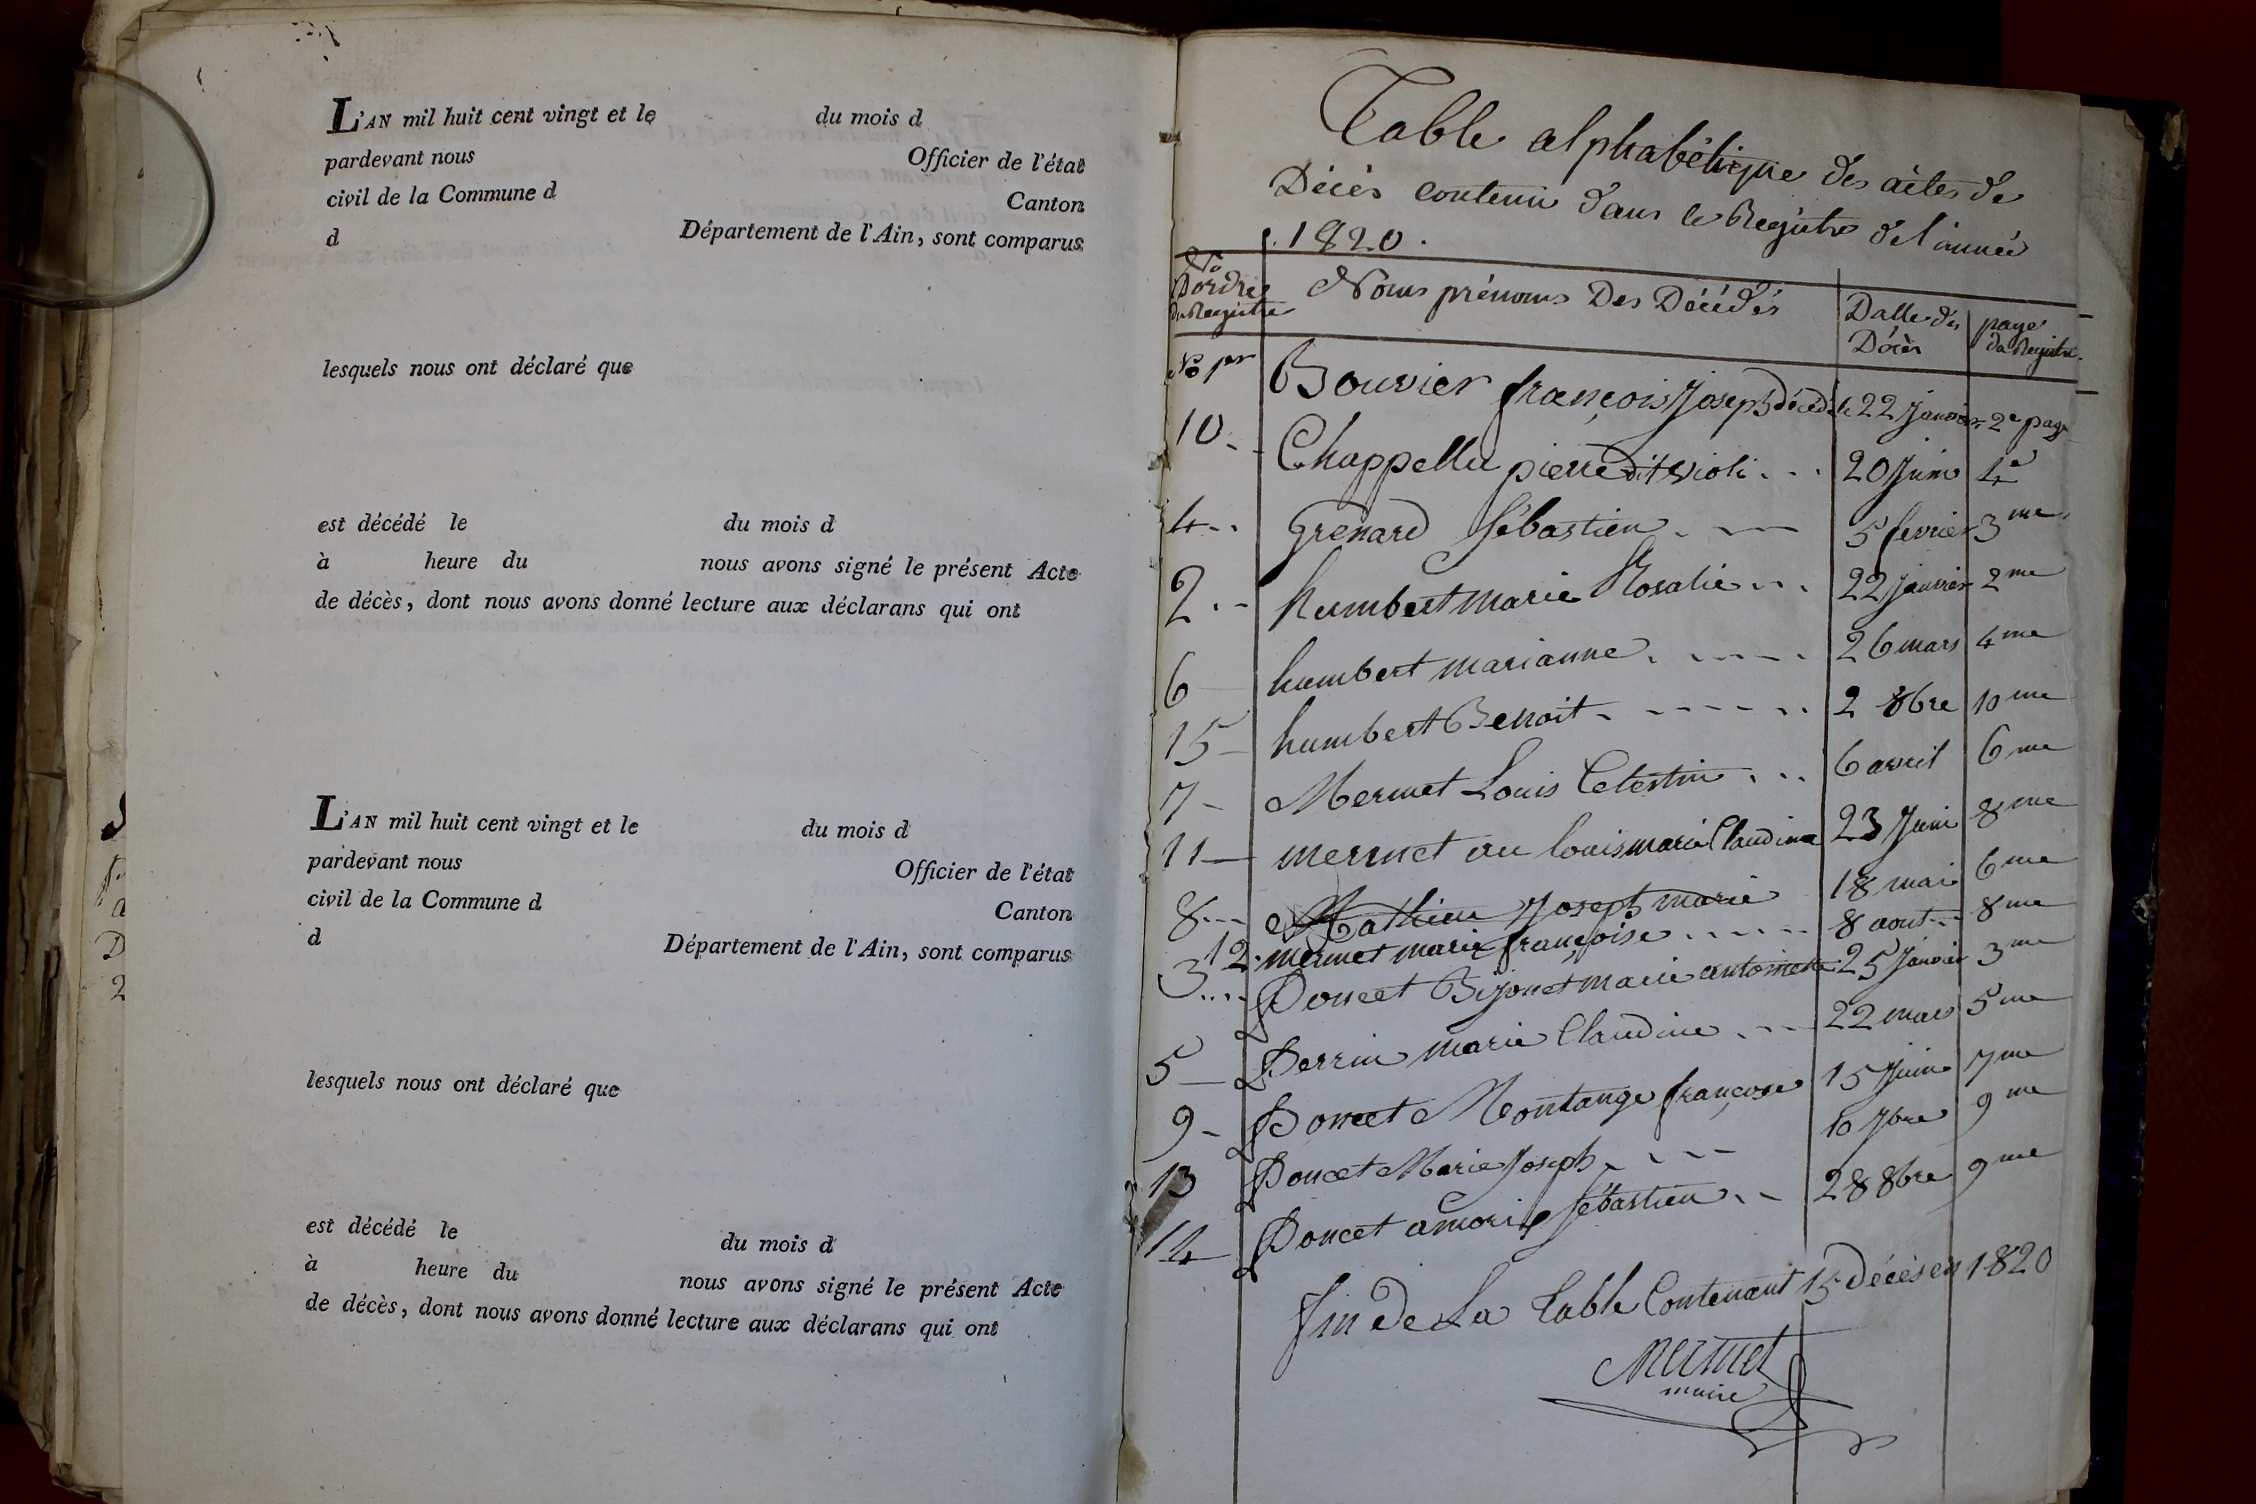 L'AN mil huit cent vingt et le du mois d
pardevant nous Officier de l'état
civil de la Commune d Canton
d Département de l'Ain, sont comparus
lesquels nous ont déclaré que
est décédé le du mois d
à heure du nous avons signé le présent Acte
de décès, dont nous avons donné lecture aux déclarans qui ont
L'AN mil huit cent vingt et le du mois d
pardevant nous Officier de l'état
civil de la Commune d Canton
d Département de l'Ain, sont comparus
lesquels nous ont déclaré que
est décédé le du mois d
à heure du nous avons signé le présent Acte
de décès, dont nous avons donné lecture aux déclarans qui ont
Table alphabétique des actes de
Décès contenu dans le Registre de l'année
1820.
No D'ordre du Registre Noms prénoms Des Décédés Datte des Décès page du Registre
No 1er Bouvier françois Joseph décédé le 22 Janvier 2e page
10 Chappellu pierre dit violi 20 Juin 4e
4 Grenard Sébastien 5 fevrier 3me
2 humbert marie Rosalie 22 janvier 2me
6 humbert marianne 26 mars 4me
15 humbert Benoit 2 8bre 10me
7 Mermet Louis Celestin 6 avril 6me
11 mermet au louis marie Claudine 23 Juin 8me
8 Mathieu Joseph marie 18 mai 6me
12 mermet marie françoise 8 aout 8me
3 Poncet Bijonet marie antoinette 25 Janvier 3me
5 Perrin marie Claudine 22 mars 5me
9 Poncet Montange françoise 15 Juin 7me
13 Poncet Marie Joseph 10 7bre 9me
14 Poncet Sébastien 28 8bre 9me
fin de La table Contenant 15 décès en 1820
Mermet
maire